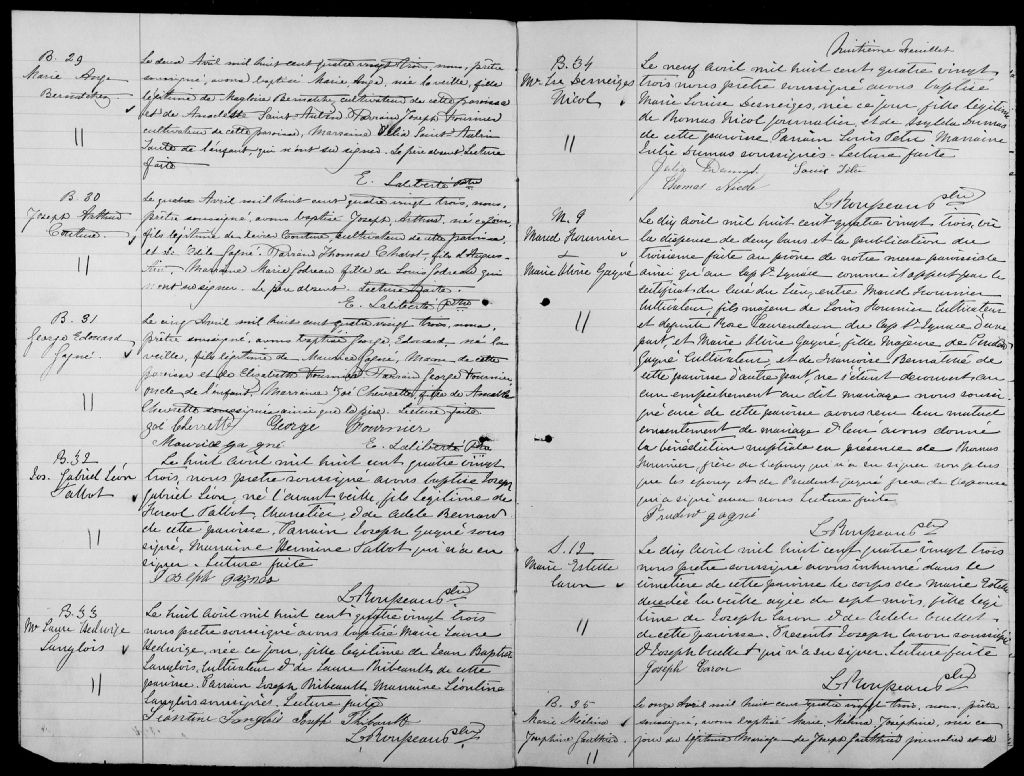 B. 29
Marie Ange
Bernatchez
Le deux Avril mil huit cent quatre vingt trois, nous, prêtre
soussigné, avons baptisé Marie Ange, née la veille, fille
légitime de Magloire Bernatchez, cultivateur de cette paroisse
et de Anaclette Saint Aubin Parrain Joseph Fournier
cultivateur de cette paroisse, Marraine Saint Aubin
tante de l'enfant, qui n'ont su signer. Le père absent Lecture
faite
E. Laliberté ptre
B. 30
Joseph Arthur
Couture
Le quatre Avril mil huit cent quatre vingt trois, nous,
prêtre soussigné, avons baptisé Joseph Arthur, né ce jour,
fils légitime de Couture, cultivateur de cette paroisse
et de Gagné. Parrain Thomas Chabot, fils d'
Marraine Marie Godreau fille de Louis Godreau qui
n'ont su signer. Le père absent. Lecture faite.
E. Laliberté ptre
B. 31
George Edouard
Gagné.
Le cinq Avril mil huit cent quatre vingt trois, nous,
prêtre soussigné, avons baptisé George, Edouard, né la
veille, fils légitime de Maurice Gagné, Maçon de cette
paroisse et de Elisabeth Fournier Parrain George Fournier,
oncle de l'enfant, Marraine Zoé Chevrette, fille de
Chevrette soussignés ainsi que le père. Lecture faite
Zoé Cherrette George Fournier
Maurice gagné E. Laliberté Ptre
B. 32
Jos. Gabriel Léon
Talbot
Le huit avril mil huit cent quatre vingt
trois, nous prêtre soussigné avons baptisé Joseph
Gabriel Léon, né l'avant veille, fils légitime de
Talbot, Charretier, & de Adèle Bernard
de cette paroisse. Parrain Joseph Gagné sous
signé, Marraine Hermine Talbot qui n'a su
signer. Lecture faite
Joseph gagnés
L. Roupeau ptre
B. 33
Me Laure Hedwige
Langlois
Le huit Avril mil huit cent quatre vingt trois
nous prêtre soussigné avons baptisé Marie Laure
Hedwige, née ce jour, fille légitime de Jean Baptiste
Langlois, Cultivateur & de Laure Thibeault de cette
paroisse. Parrain Joseph Thibeault Marraine Léontine
Langlois soussignés. Lecture faite
Leontine Langlois Joseph Thibault
L. Roupeau ptre
Huitième Feuillet
B. 34
Me Lse Desneiges
Nicol
Le neuf avril mil huit cent quatre vingt
trois nous prêtre soussigné avons baptisé
Marie Louise Desneiges, née ce jour fille légitime
de Thomas Nicol journalier, et de Dumas
de cette paroisse Parrain Louis Marraine
Julie Dumas soussignés. Lecture faite
Julie Dumas Louis
Thomas Nicole
L. Roupeau ptre
M. 9
Marcel Fournier
&
Marie Alvire Gagné
Le dix avril mil huit cent quatre vingt trois, vu
la dispense de deux bans et la publication du
troisième faite au prône de notre messe paroissiale
ainsi qu'au Cap St Ignace comme il appert par le
certificat du Curé du lieu, entre Marcel Fournier
Cultivateur, fils majeur de Louis Fournier Cultivateur
et défunte Rose Laurendeau du Cap St Ignace d'une
part, et Marie Alvire Gagné, fille majeure de Prudent
Gagné Cultivateur et de Bernatché de
cette paroisse d'autre part, ne s'étant découvert au
cun empêchement au dit mariage nous soussi
gné curé de cette paroisse avons reçu leur mutuel
consentement de mariage & leur avons donné
la bénédiction nuptiale en présence de Thomas
Fournier, frère de l'époux, qui n'a su signer non plus
que les époux et de Prudent Gagné frère de l'épouse
qui a signé avec nous Lecture faite
Prudent gagné
L. Roupeau ptre
S. 12
Marie Estelle
Caron
Le dix avril mil huit cent quatre vingt trois
nous prêtre soussigné avons inhumé dans le
cimetière de cette paroisse le corps de Marie Estelle
décédée la veille agée de sept mois, fille légi
time de Joseph Caron & de Adèle Ouellet
de cette paroisse. Présents Joseph Caron soussigné
& Joseph Ouellet qui n'a su signer. Lecture faite
Joseph Caron
L. Roupeau ptre
B. 35
Marie Mélina
Joséphine Gauthier
Le onze Avril mil huit cent quatre vingt trois, nous, prêtre
soussigné, avons baptisé Marie Mélina Joséphine, née ce
jour du légitime Mariage de Joseph Gauthier journalier et de